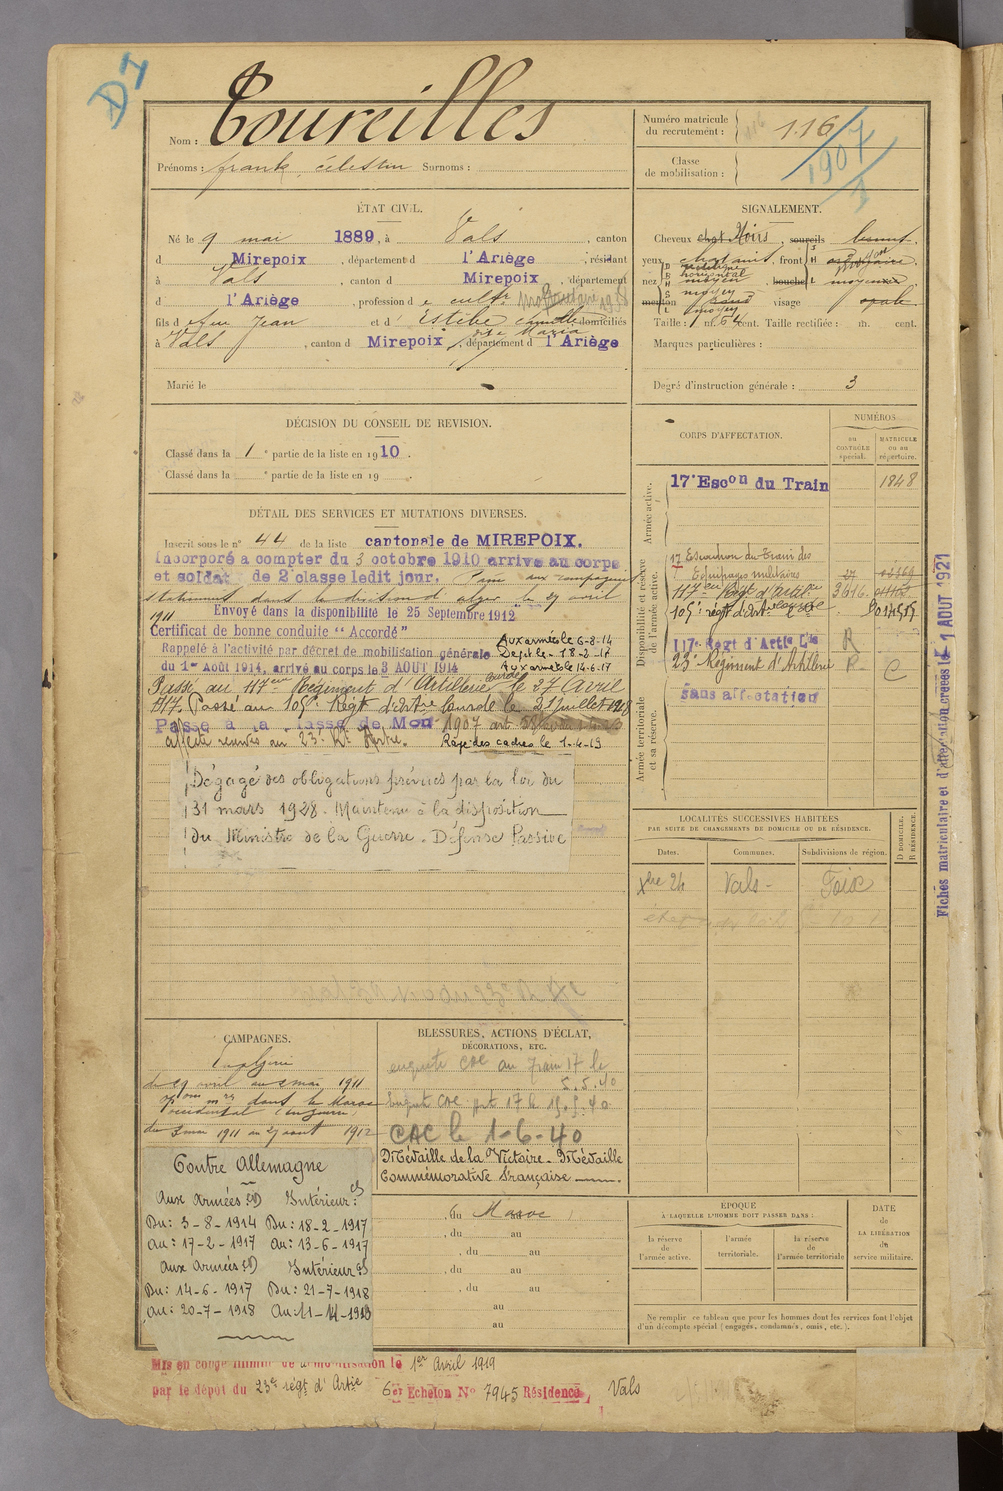 D1
Nom : Toureilles
Prénoms : frank, célestin Surnoms :
Numéro matricule
du recrutement : 116
Classe
de mobilisation :
1907
ÉTAT CIVIL.
Né le 9 mai 1889, à Vals, canton
d Mirepoix, département d l'Ariège, résidant
à Vals, canton d Mirepoix, département
d l'Ariège, profession d e cultr
fils d e feu Jean et d' Estèbe camille domiciliés
dite Maria
à Vals, canton d Mirepoix, département d l'Ariège
Marié le
SIGNALEMENT.
Cheveux chat Noirs, sourcils bruns.
yeux chatains, front
nez moyen, bouche moyenne
menton rond visage ovale
Taille : 1 m. 64 cent. Taille rectifiée : m. cent.
Marques particulières :
Degré d'instruction générale : 3
DÉCISION DU CONSEIL DE REVISION.
Classé dans la 1e partie de la liste en 1910.
Classé dans la e partie de la liste en 19 .
DÉTAIL DES SERVICES ET MUTATIONS DIVERSES.
Inscrit sous le n° 44 de la liste cantonale de MIREPOIX.
Incorporé a compter du 3 octobre 1910 arrive au corps
et soldat de 2e classe ledit jour. Passé aux compagnies
stationnées dans la division d'alger le 29 avril
1911 Envoyé dans la disponibilité le 25 Septembre 1912
Certificat de bonne conduite "Accordé"
Rappelé à l'activité par décret de mobilisation générale
du 1er Août 1914, arrivé au corps le 3 AOUT 1914
Aux armées le 6-8-14
Dépt le 18-2-17
Aux armées le 14-6-17
Passé au 117eme Régiment d'Artillerie lourde le 27 Avril
1917. Passé au 105e Régt d'Artie lourde le 21 juillet 1918
Passe a la classe de Mon 1907
affecté réserves au 23e Rt Artie. Rayé des cadres le 1-4-19
Dégagé des obligations prévues par la loi du
31 mars 1928. Maintenu à la disposition
du Ministre de la Guerre. Défense Passive
CORPS D'AFFECTATION.
NUMÉROS
au
CONTRÔLE
spécial.
MATRICULE
ou au
répertoire.
Armée active.
17e Escon du Train 1848
Disponibilité et réserve
de l'armée active.
17 Escadron du Train des
Equipages militaires 27
117eme Régt d'Artillie 3616
105e régt d'Artie lourde
117e Régt d'Artie Lde R
23e Régiment d'Artillerie R- C
Armée territoriale
et sa réserve.
Sans affectation
Fiches matriculaire et d'affectation créées le 1 AOUT 1921
LOCALITÉS SUCCESSIVES HABITÉES
PAR SUITE DE CHANGEMENTS DE DOMICILE OU DE RÉSIDENCE.
Dates. Communes. Subdivisions de région. D DOMICILE. R RÉSIDENCE.
Xbre 24 Vals - Foix
CAMPAGNES.
En Algérie
du 29 avril au 2 mai 1911
opons mres dans le Maroc
occidental (en guerre)
du 3 mai 1911 au 29 aout 1912
Contre Allemagne
Aux Armées (CD) Intérieur CS
Du : 3-8-1914 Du : 18-2-1917
Au : 17-2-1917 Au : 13-6-1917
Aux Armées (CD) Intérieur CS
Du : 14-6-1917 Du : 21-7-1918
Au : 20-7-1918 Au : 11-11-1918
BLESSURES, ACTIONS D'ÉCLAT,
DÉCORATIONS, ETC.
enquete CAC au train 17 le
5.5.40
CAC le 1-6-40
Médaille de la Victoire - Médaille
Commémorative Française
, du Maroc au
, du au
, du au
, du au
, du au
au
au
ÉPOQUE
À LAQUELLE L'HOMME DOIT PASSER DANS :
la réserve
de
l'armée active.
l'armée
territoriale.
la réserve
de
l'armée territoriale
DATE
de
LA LIBÉRATION
du
service militaire.
Ne remplir ce tableau que pour les hommes dont les services font l'objet
d'un décompte spécial (engagés, condamnés, omis, etc.).
Mis en congé illimité de démobilisation le 1er Avril 1919
par le dépôt du 23e régt d'Artie 6er Echelon No 7945 Résidence, Vals